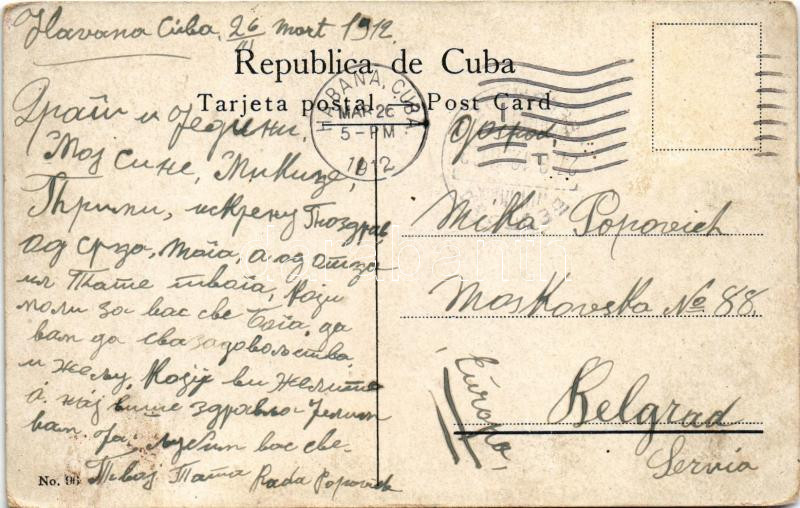 Havana Cúba, 26/III mart 1912.
Republica de Cuba
Tarjeta postal — Post Card
HABANA, CUBA
MAR 26
5-PM
1912
Драги и једини,
Мој сине, Микице,
Прими, искрену Поздрав
од срца, мога, а од отца
или Тате твога, који
моли за вас све Бога, да
вам да сва задовољства,
и жељу, које ви желите
а највише здравља желим
вам ја, љубим вас све.
Твој Тата Rada Popovich
Господ,
Mika Popovich
Moskovska No 88.
Europa,
Belgrad
Servia
No. 96